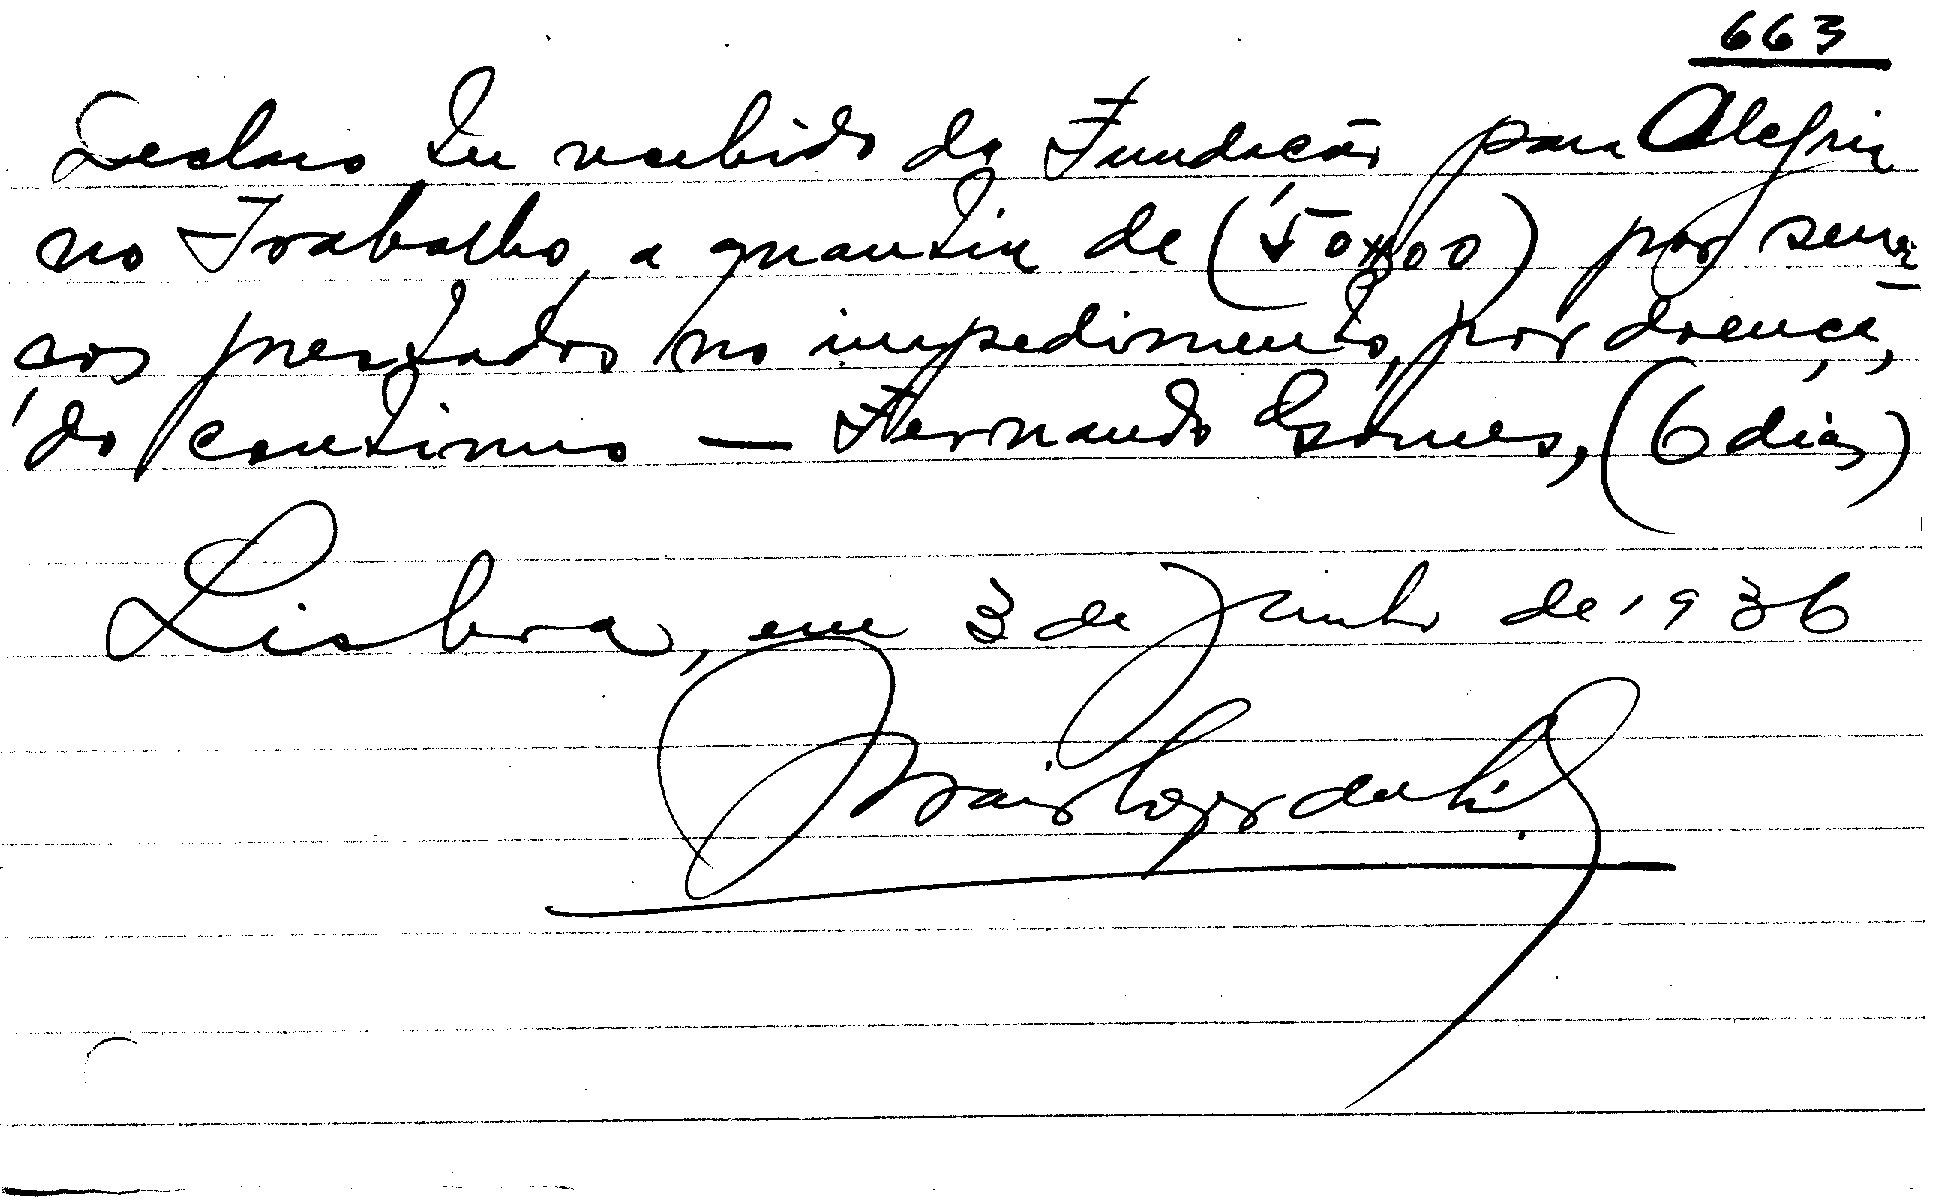 663
Declaro ter recebido da Fundação para Alegria
no Trabalho, a quantia de (50$00) por servi-
ços prestados no impedimento, por doença,
do contínuo — Fernando Gomes, (6 dias)
Lisboa, em 3 de Junho de 1936
Lopes da